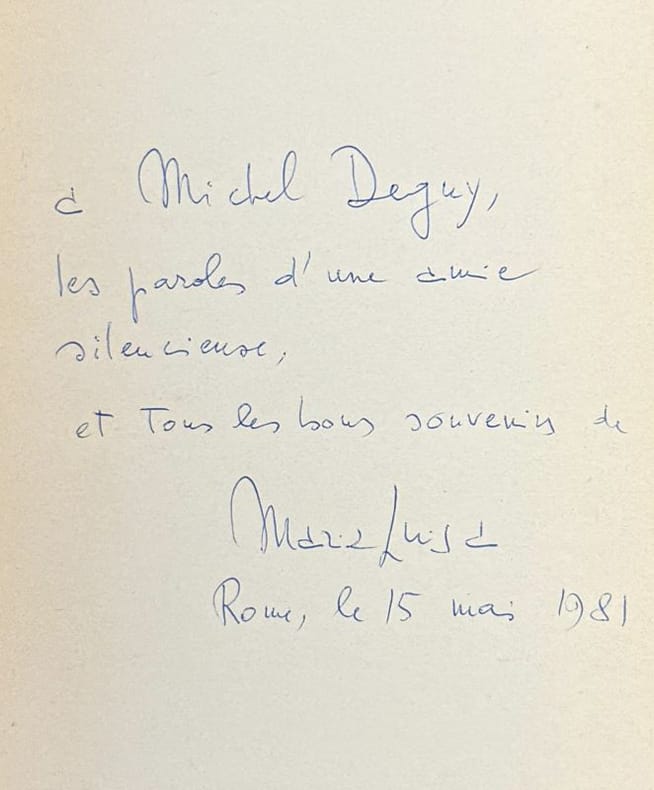 à Michel Deguy,
les paroles d'une amie
silencieuse,
et tous les bons souvenirs de
Maria Luisa
Rome, le 15 mai 1981